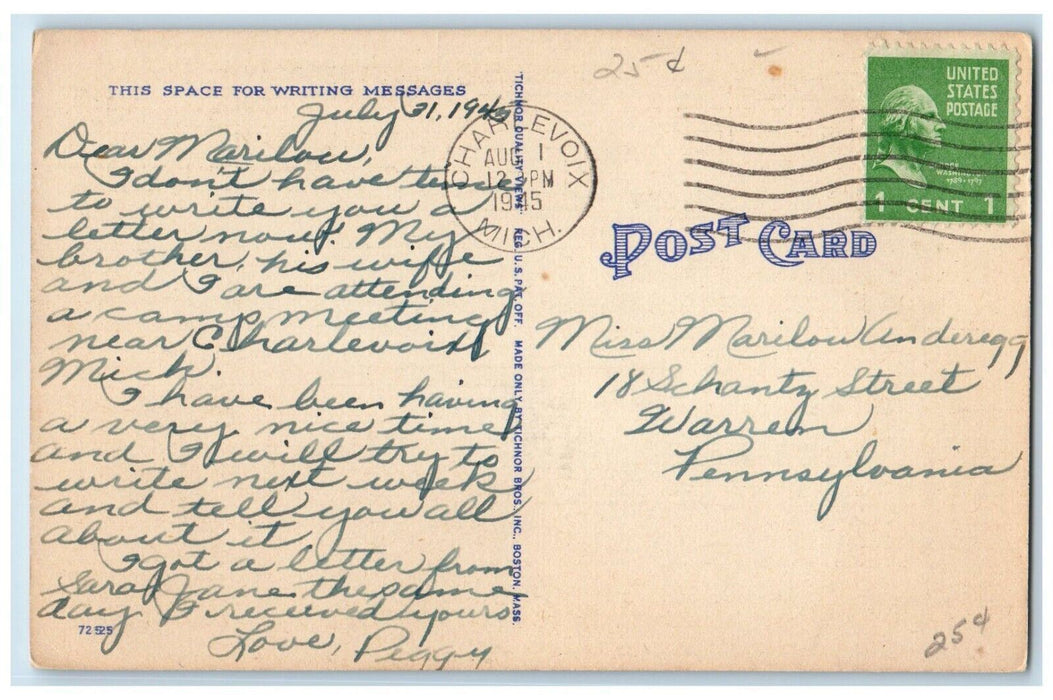 THIS SPACE FOR WRITING MESSAGES
July 31, 1945
Dear Marilou,
I don't have time
to write you a
letter now. My
brother, his wife
and I are attending
a camp meeting
near Charlevoix,
Mich.
I have been having
a very nice time
and I will try to
write next week
and tell you all
about it.
I got a letter from
Sara Jane the same
day I received yours.
Love, Peggy
72525
TICHNOR QUALITY VIEWS REG. U.S. PAT. OFF. MADE ONLY BY TICHNOR BROS., INC., BOSTON, MASS.
CHARLEVOIX
AUG 1
12 PM
1945
MICH.
25¢
UNITED
STATES
POSTAGE
WASHINGTON
1789-1797
1 CENT 1
POST CARD
Miss Marilou Anderegg
18 Schantz Street
Warren
Pennsylvania
25¢